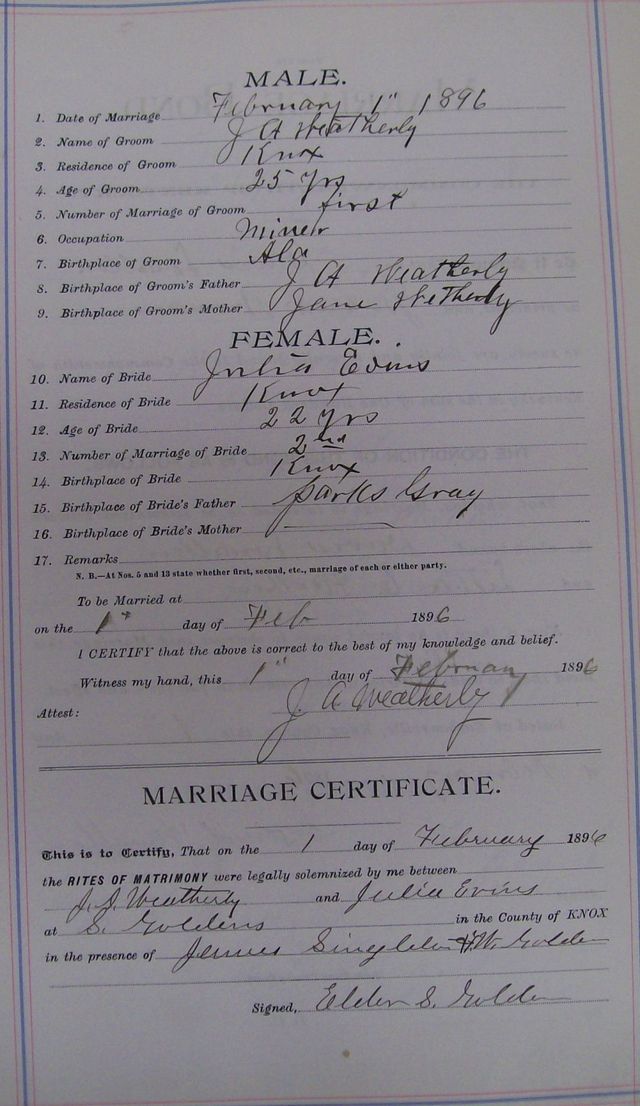 MALE.
1. Date of Marriage February 1" 1896
2. Name of Groom J A Weatherly
3. Residence of Groom Knox
4. Age of Groom 25 yrs
5. Number of Marriage of Groom first
6. Occupation Miner
7. Birthplace of Groom Ala
8. Birthplace of Groom's Father J A Weatherly
9. Birthplace of Groom's Mother Jane Wetherly
FEMALE.
10. Name of Bride Julia Evins
11. Residence of Bride Knox
12. Age of Bride 22 yrs
13. Number of Marriage of Bride 2nd
14. Birthplace of Bride Knox
15. Birthplace of Bride's Father Parks Gray
16. Birthplace of Bride's Mother
17. Remarks
N. B.—At Nos. 5 and 13 state whether first, second, etc., marriage of each or either party.
To be Married at
on the 1st day of Feb 1896
I CERTIFY that the above is correct to the best of my knowledge and belief.
Witness my hand, this 1" day of February 1896
J. A Weatherly
Attest:
MARRIAGE CERTIFICATE.
This is to Certify, That on the 1 day of February 1896
the RITES OF MATRIMONY were legally solemnized by me between
J. A. Weatherly and Julia Evins
at S. Goldens in the County of KNOX
in the presence of James Singleton & W. Golden
Signed, Elder S. Golden